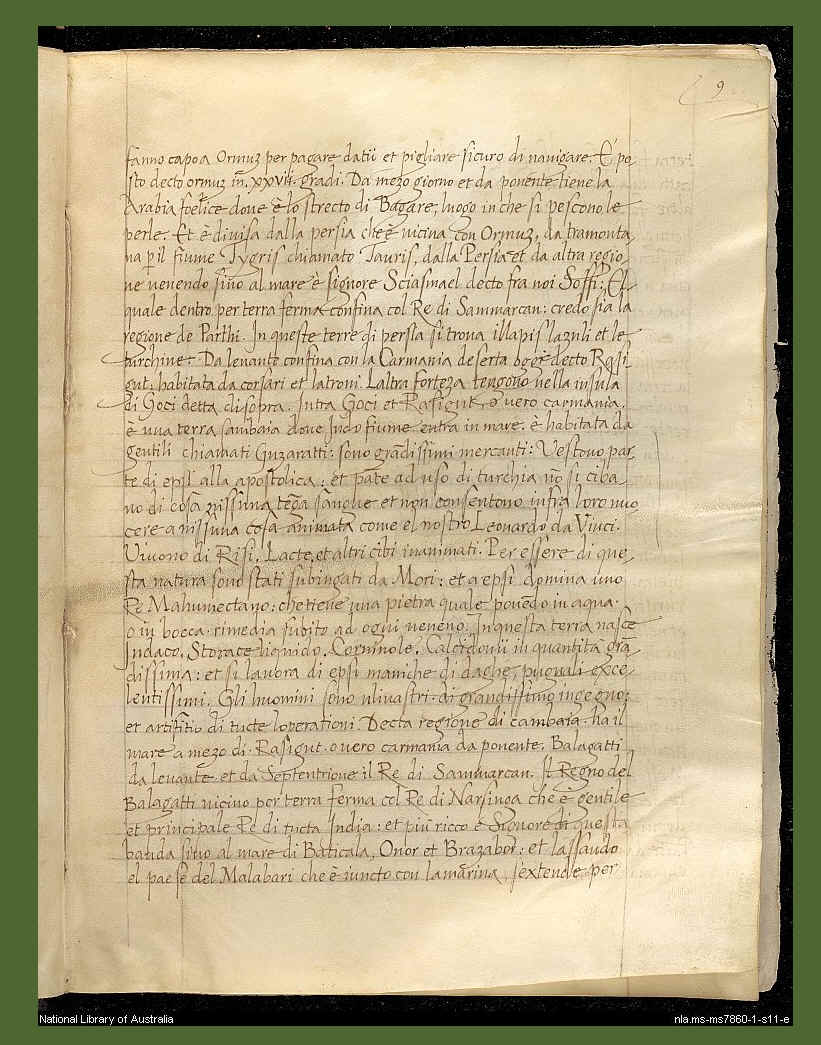 9
fanno capo a Ormuz per pagare datii et pigliare sicuro di navigare. E' po,
sto decto ormuz in .xxvii. gradi. Da mezo giorno et da ponente tiene la
Arabia foelice doue è lo strecto di Bagare, luogo in che si pescono le
perle. Et è divisa dalla persia che è vicina con Ormuz, da tramonta,
na p il fiume Tygris chiamato Tauris, dalla Persia et da altra regio,
ne venendo sino al mare è signore Sciasmael decto fra noi Soffi: El
quale dentro per terra ferma confina col Re di Sammarcan: credo sia la
regione de Parthi. In queste terre di persia si trova illapis lazuli et le
turchine. Da levante confina con la Carmania deserta oggi decto Rasi
gut: habitata da corsari et latroni. Laltra forteza tengono nella insula
di Goci detta disopra. Intra Goci et Rasigut, o vero carmania,
è una terra Cambaia doue Indo fiume entra in mare. è habitata da
gentili chiamati Guzaratti: sono grādissimi mercanti: Vestono par,
te di epsi alla apostolica: et pāte ad uso di turchia nō si ciba,
no di cosa nissuna tēga sāngue et non consentono infra loro nuo
cere a nissuna cosa animata come el nostro Leonardo da Vinci.
Vivono di Risi, Lacte, et altri cibi inanimati. Per essere di que,
sta natura sono stati subiugati da Mori: et a epsi domina uno
Re Mahumectano: che tiene una pietra quale ponēdo in aqua.
o in bocca. rimedia subito ad ogni veneno. In questa terra nasce
Indaco, Storace liquido, Corninole, Calcidonii in quantità grā
dissima: et si lavora di epsi maniche di daghe, pugnali excel
lentissimi. Gli huomini sono ulivastri. di grandissimo ingegno:
et artifitio di tucte loperationi. Decta regione di cambaia. ha il
mare a mezo di. Rasigut. o vero carmania da ponente. Balagatti
da levante et da Septentrione il Re di Sammarcan. Il Regno del
Balagatti vicino per terra ferma col Re di Narsinga che è gentile
et principale Re di tucta India: et più ricco è Signore di questa
banda sino al mare di Baticala, Onor et Brazabor: et lassando
el paese del Malabari che è iuncto con la marina, s'extende per
National Library of Australia
nla.ms-ms7860-1-s11-e